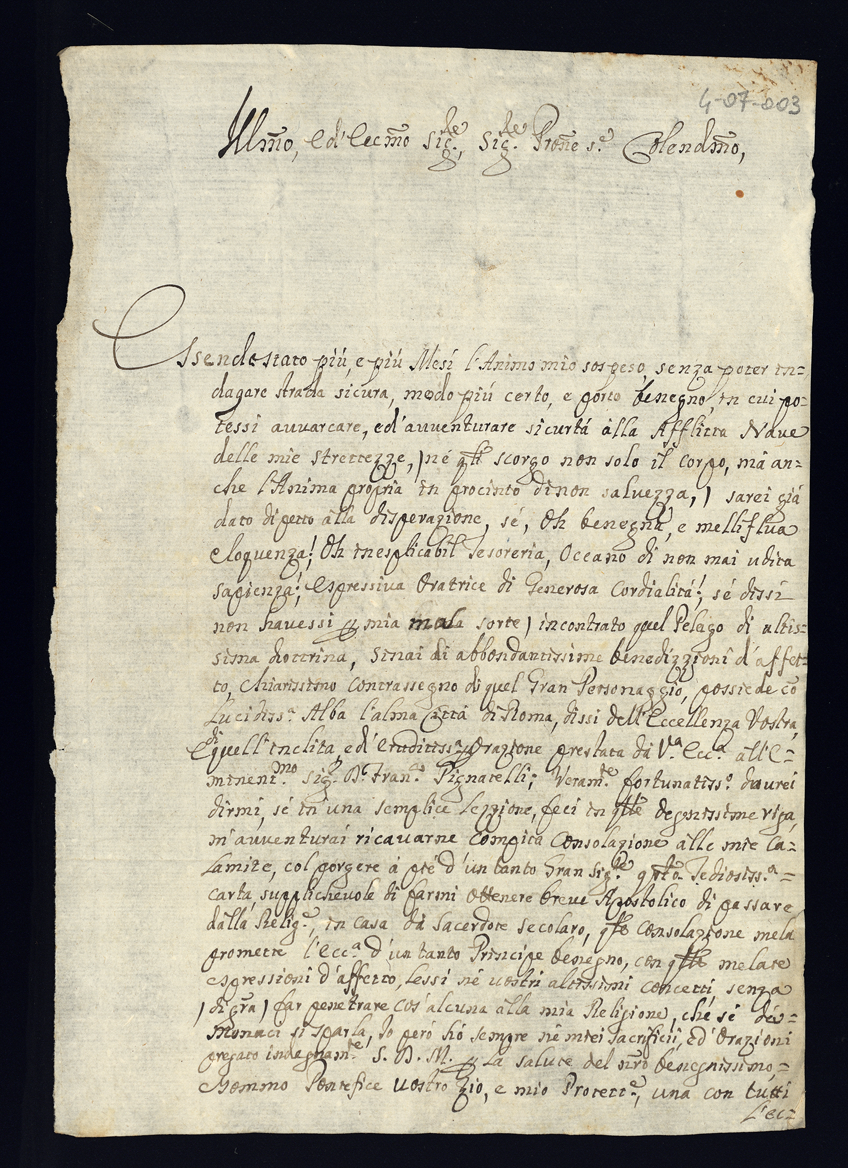 4-07-003
Illmo, ed' Eccmo Sig.re, Sig.re Prone s.e Colendmo,
Essendo stato più, e più Mesi l'Animo mio sospeso, senza poter in=
dagare strada sicura, modo più certo, e porto benegno, in cui po=
tessi avvarcare, ed'avventurare sicurtà alla Afflitta Nave
delle mie strettezze, ) né qli scorgo non solo il corpo, mà an=
che l'Anima propria in procinto di non salvezza, ) sarei già
dato di petto alla disperazione, sé, Oh benegna, e melliflua
eloquenza! Oh inesplicabil Tesoreria, Oceano di non mai udita
sapienza! espressiva Oratrice di Generosa Cordialità!, sé dissi
non havessi p mia mala sorte ) incontrato quel Pelago di altis=
sima dottrina, Sinai di abbondantissime benedizzioni d'affet=
to, Chiarissimo contrassegno di quel Gran Personaggio, possiede cō
Lucidiss.a Alba l'alma Città di Roma, dissi dell'Eccellenza Vostra,
di quell'inclita ed' Eruditiss.a Orazione prestata dà V.ra Ecc.a all'E=
minen.mo Sig.r D. Fran.co Pignatelli; Veram.te fortunatiss.o dovrei
dirmi, sé in'una semplice Lezzione, feci in qlle degnissime riga,
m'avventurai ricavarne compita Consolazione alle mie ca=
lamite, col porgere à piè d'un tanto Gran Sig.re qsta Tediosiss.a =
carta, supplichevole di farmi ottenere breve Apostolico di passare
dalla Relig.e, in casa dà Sacerdote secolaro, qsta consolazione mela
promette l'Ecc.a d'un tanto Principe benegno, con qlle melate
espressioni d'affetto, Lessi né vostri altissimi concetti, senza
) di gra ) far penetrare cos'alcuna alla mia Religione, ché sé dé=
Monaci si sparla, Io però hò sempre né miei Sacrificii, ed'Orazioni
pregato indegnam.te S. D. M. p La salute del nro benegnissimo =
Sommo Pontefice vostro Zio, e mio Protett.e, una con tutti
L'ec=